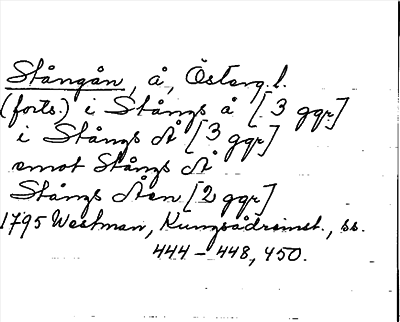 Stångån, å, Österg.l.
(forts.) i Stångs å [3 ggr]
i Stångs Å [3 ggr]
emot Stångs Å
Stångs Åen [2 ggr]
1795 Westman, Kungsådreinst., ss.
444–448, 450.